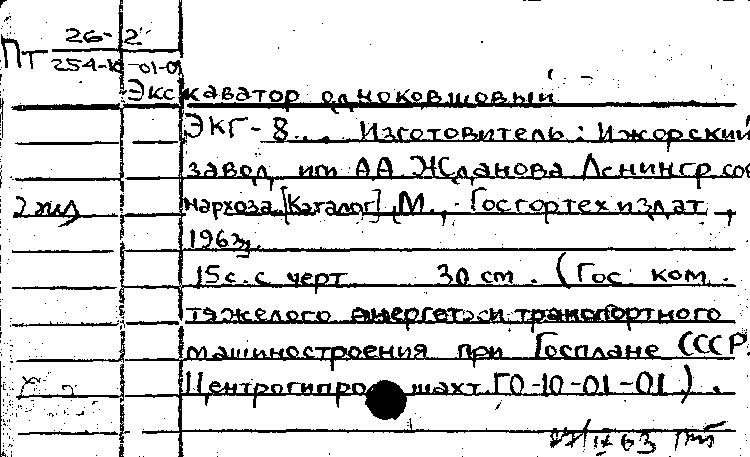 26-2
ПТ 254-10-01-01
Экскаватор одноковшовый
ЭКГ-8... Изготовитель: Ижорский
завод им А А Жданова Ленингр сов
2 экз нархоза [Каталог], М., Госгортехиздат,
1963.
15 с. с черт 30 см. (Гос ком.
тяжелого энергет. и транспортного
машиностроения при Госплане СССР
Центрогипрошахт ГО-10-01-01).
27/IX 63